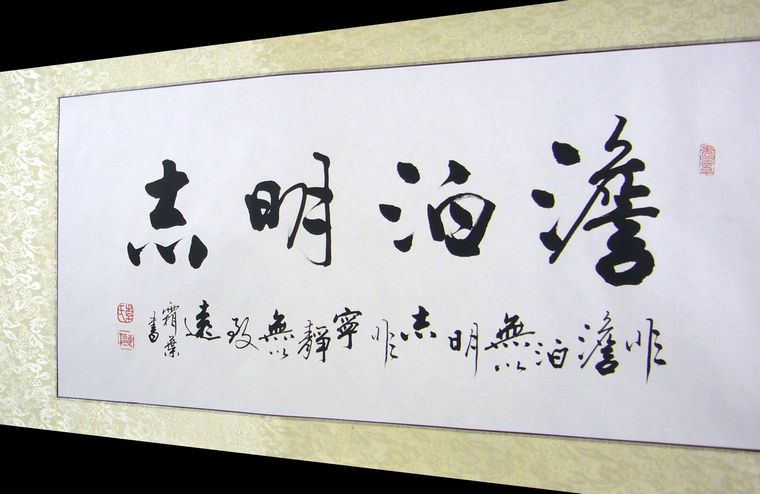 澹泊明志
非澹泊無以明志非寧靜無以致遠
霜葉書